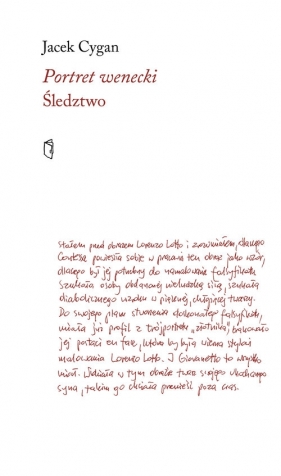 Jacek Cygan
Portret wenecki
Śledztwo
stałem pred obrazem Lorenzo Lotto i zrozumiałem, dlaczego
Contessa powiesiła sobie w pracowni ten obraz jako wzór,
dlaczego był jej potrzebny do namalowania falsyfikatu
szukała osoby obdarzonej wewnętrzną siłą, szukała
diabolicznego uroku w pięknej, chłopięcej twarzy.
Do swojego planu stworzenia doskonałego falsyfikatu,
miała już profil z trójportretu „złotnika", brakowało
jej postaci en face, która by była wierna stylowi
malowania Lorenzo Lotto. I Giovanetto to wszystko
miał. Widziała w tym obrazie twarz swojego ukochanego
syna, takim go chciała przenieść poza czas.